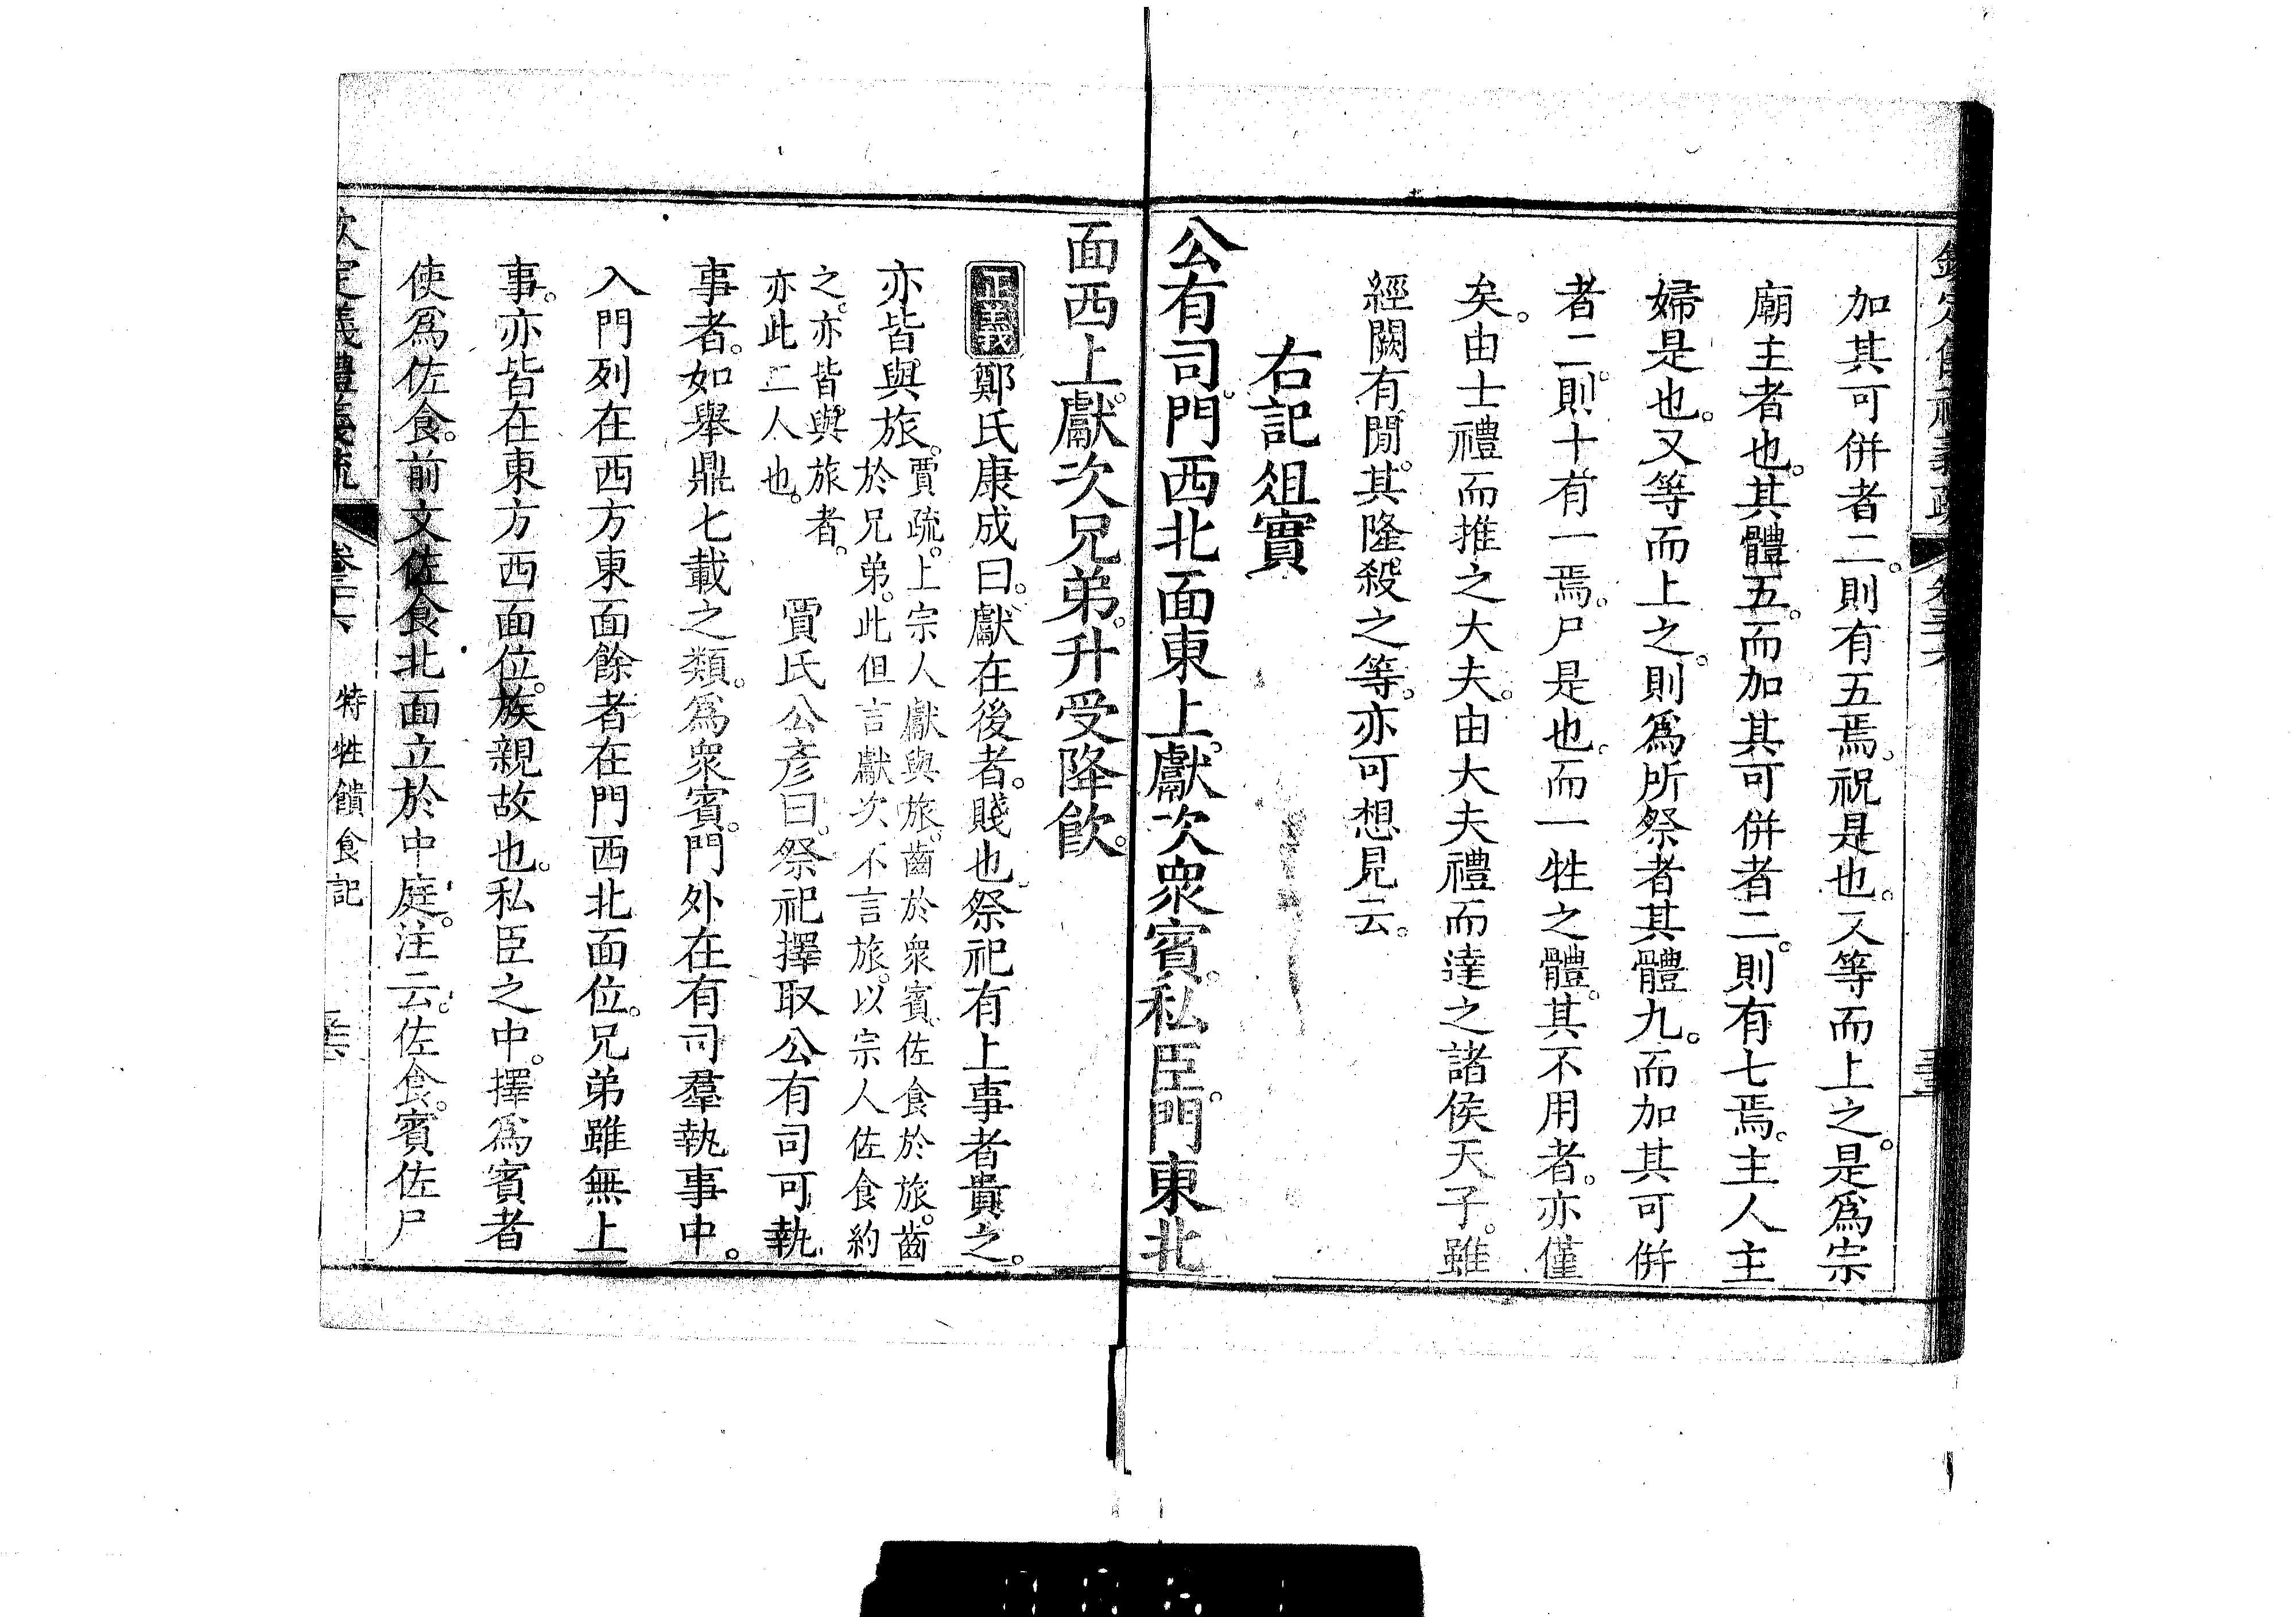 加其可併者二。則有五焉。祝是也。又等而上之。是爲宗
廟主者也。其體五。而加其可併者二。則有七焉。主人主
婦是也。又等而上之。則爲所祭者其體九。而加其可併
者二。則十有一焉。尸是也。而一牲之體。其不用者。亦僅
矣。由士禮而推之大夫。由大夫禮而達之諸侯天子。雖
經闕有閒。其隆殺之等。亦可想見云。
右記俎實
公有司。門西北面東上。獻次衆賓。私臣。門東北
面西上。獻次兄弟。升受降飮。
正義 鄭氏康成曰。獻在後者。賤也。祭祀有上事者貴之。
亦皆與旅。賈疏。上宗人獻與旅。齒於衆賓。佐食於旅。齒
於兄弟。此但言獻次不言旅。以宗人佐食約
之。亦皆與旅者。
亦此二人也。
賈氏公彥曰。祭祀擇取公有司可執
事者。如舉鼎匕載之類。爲衆賓。門外在有司羣執事中。
入門列在西方東面餘者在門西北面位。兄弟雖無上
事。亦皆在東方西面位。族親故也。私臣之中。擇爲賓者
使爲佐食。前文佐食北面立於中庭。注云。佐食。賓佐尸
定義禮義疏 卷三六 特牲饋食記